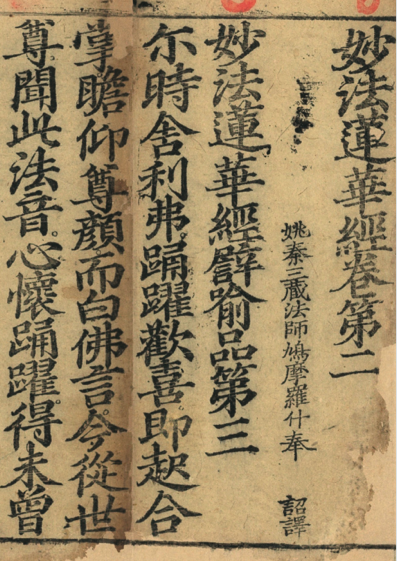 妙法蓮華經卷第二
姚秦三藏法師鳩摩羅什奉 詔譯
妙法蓮華經譬喻品第三
尒時舍利弗踊躍歡喜即起合
掌瞻仰尊顏而白佛言今從世
尊聞此法音心懷踊躍得未曾